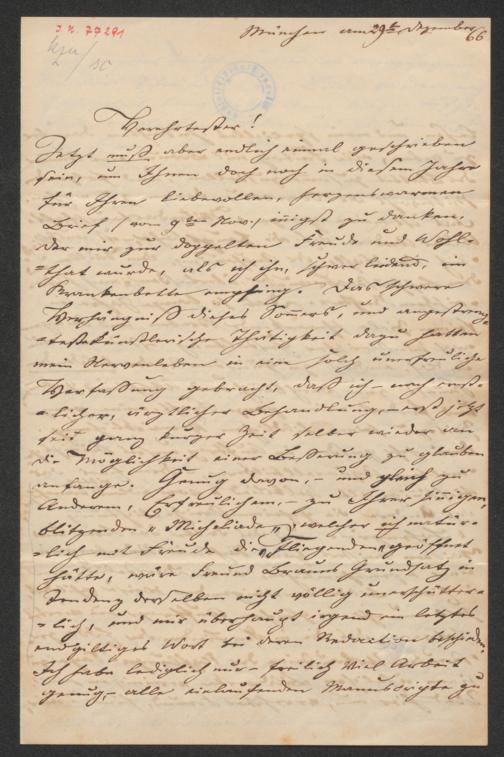 I. N. 77291
München am 29ᵗ Dezember 66
Verehrtester!
Jetzt muß aber endlich einmal geschrieben
sein, um Ihnen doch noch in diesem Jahre
für Ihren liebevollen, herzenswarmen
Brief (vom 9ten Nov.) innigst zu danken,
der mir zur doppelten Freude und Wohl-
=that wurde, als ich ihn, schwer leidend, im
Krankenbette empfing. Das schwere
Verhängniß dieses Sommers, und angestreng-
=teste künstlerische Thätigkeit dazu hatten
mein Nervenleben in eine solch unerfreuliche
Verfassung gebracht, daß ich – nach ernst-
=licher, ärztlicher Behandlung, – erst jetzt
seit ganz kurzer Zeit selber wieder an
die Möglichkeit einer Besserung zu glauben
anfange. Genug davon, – und gleich zu
Anderem, Erfreulichem, – zu Ihrer sinnigen,
blitzenden „Micheliade", welcher ich natür-
=lich mit Freude die „Fliegenden" geöffnet
hätte, wäre Freund Brauns Grundsatz in
Tendenz derselben nicht völlig unerschütter-
=lich, und mir überhaupt irgend ein letztes
endgiltiges Wort bei deren Redaction beschieden.
Ich habe lediglich nur – freilich viel Arbeit
genug, – alle einlaufenden Manuscripte zu